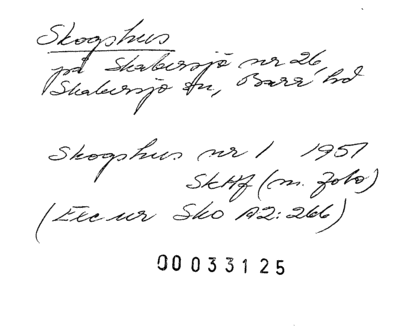 Skogshus
på Skabersjö nr 26,
Skabersjö sn, Bara hd
Skogshus nr 1 1951
SkHf (m. foto)
(Exc ur Sko A2:266)
00033125